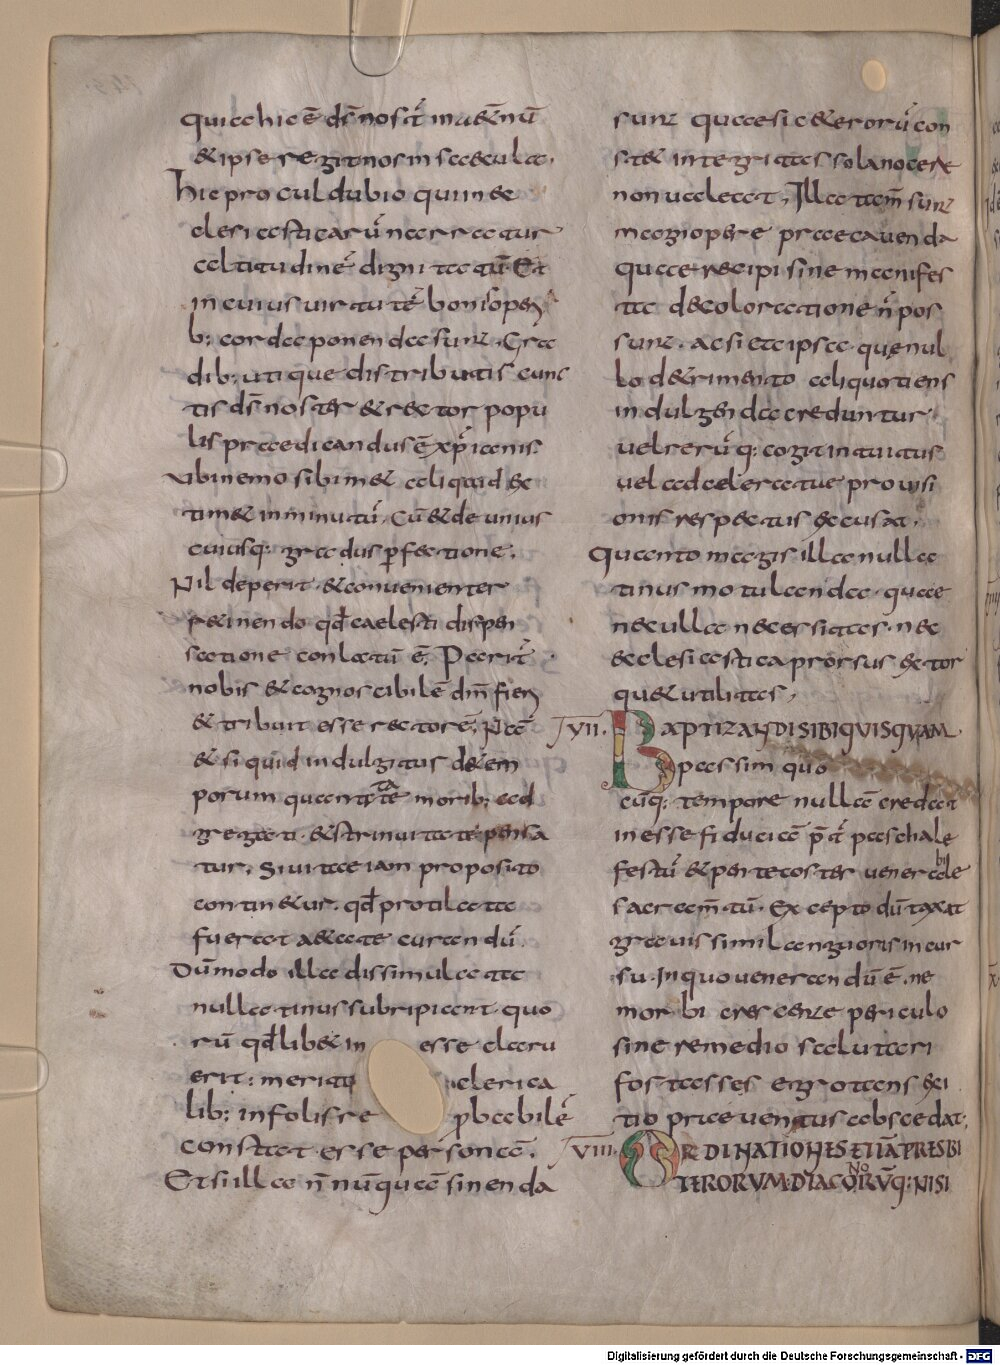 quia hic ē ds̄ nosṫ in a&ernū
& ipse reg& nos in saecula.
hic procul dubio qui in ec
clesiasticarū narratur
altitudinē dignitatū. Et
in cuius virtutē bonis open
b: cordaponenda sunt. Gra
dib: utique distributis cunc
tis ds̄ noster & rector popu
lis praedicandus ē xp̄ianis.
Vbi nemo sibim& aliquid ec
tim& inminutū. Cū & de unius
cuiusq: gradus p̱fectione.
Nil deperit & convenienter
r&inendo qd̄ caelesti dispen
satione conlatū ē. Paeriṫ
nobis & cognoscibile dn̄i fieri
& tribuit esse rectorē. Nā
& si quid indulgitur d& em
porum quantitate morib: ad
gregati. & strinuitate pensa
tur. Si vitae iam proposito
contin&ur. qd̄ prolata
fuerat a&ate curandū.
Dūmodo illa dissimulata
nullatinus subripiant quo
rū qd̄lib& in esse claru
erit: merito clerica
lib: infolis re pbabilē
constat esse personā.
Et si illa n̄ nūquā sinenda
sunt quae sic & erorū con
st& integritas sola nocere
non valeat, Illa tam̄ sunt
magiopere praecavenda
quae recipi sine manifes
ta decoloratione n̄ pos
sunt. Ac si eta ipsa que nul
lo d&rimento aliquotiens
indulgenda creduntur.
uel rerū q: cogit intuitus
uel adceleratae provisi
onis respectus excusat.
Quanto magis illa nulla
tinus motulanda. quae
nec ulla necersitas. nec
ecclesiastica prorsus extor
qu& utilitas,
VII. BAPTIZANDI SIBI QVISQVAM
passim quo
cūq: tempore nullā credat
inesse fiduciā p̄ṫ paschale
festū & pentecoster venerabile
sacram̄tū. Excepto dūtaxat
gravissimi langioris incur
su. In quo venerandū ē. ne
morbi crescente periculo
sine remedio salutari
fostasses egrotans exi
tio praeventus abscedat,
VIII. ORDINATIONES ETIĀ PRESBI
TERORVM. DIACONORVMQ: NISI
Digitalisierung gefördert durch die Deutsche Forschungsgemeinschaft - DFG